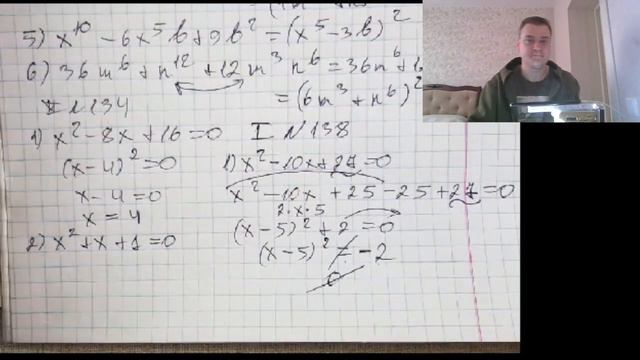 5) x¹⁰ - 6x⁵b + 9b² = (x⁵ - 3b)²
6) 36m⁶ + n¹² + 12m³n⁶ = 36m⁶ + 1
= (6m³ + n⁶)²
II №134
1) x² - 8x + 16 = 0
(x - 4)² = 0
x - 4 = 0
x = 4
2) x² + x + 1 = 0
I №138
1) x² - 10x + 27 = 0
x² - 10x + 25 - 25 + 27 = 0
2·x·5
(x - 5)² + 2 = 0
(x - 5)² = -2
0